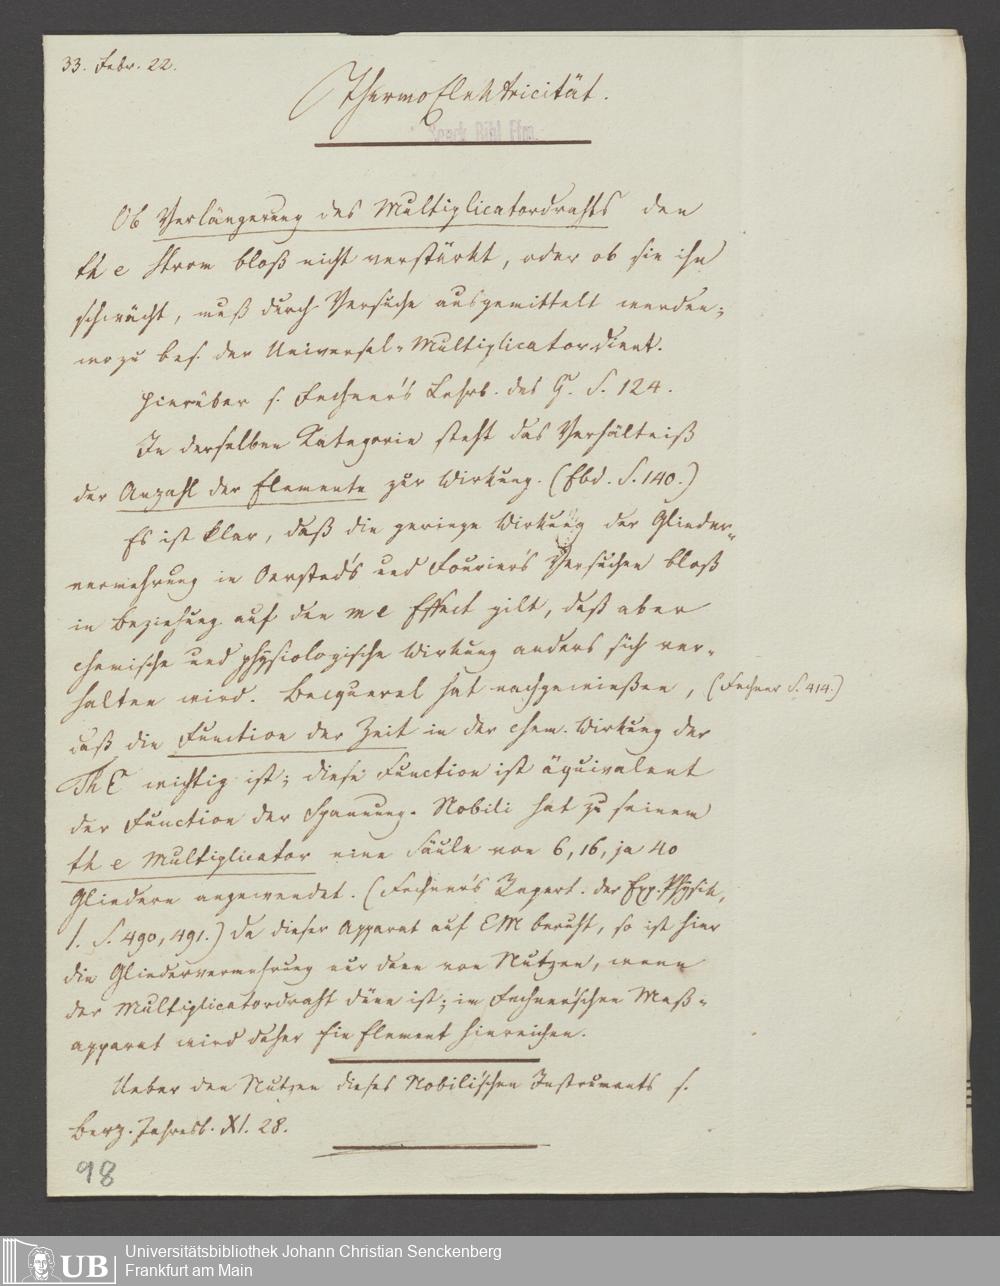 33. Febr. 22.
ThermoElektricität.
Senck. Bibl. Ffm.
Ob Verlängerung des Multiplicatordrahts den
th e Strom bloß nicht verstärkt, oder ob sie ihn
schwächt, muß durch Versuche ausgemittelt werden;
wozu bes. der Universal-Multiplicator dient.
Hierüber s. Fechner's Lehrb. des G. S. 124.
In derselben Kategorie steht das Verhältniß
der Anzahl der Elemente zur Wirkung. (Ebd. S. 140.)
Es ist klar, daß die geringe Wirkung der Glieder-
vermehrung in Oersted's und Fourier's Versuchen bloß
in Beziehung auf den m e Effect gilt, daß aber
chemische und physiologische Wirkung anders sich ver-
halten wird. Becquerel hat nachgewießen, (Fechner S. 414.)
daß die Function der Zeit in der chem. Wirkung der
Th E wichtig ist; diese Function ist äquivalent
der Function der Spannung. Nobili hat zu seinem
th e Multiplicator eine Säule von 6, 16, ja 40
Gliedern angewendet. (Fechner's Repert. der Exp. Physik,
1. S. 490, 491.) Da dieser Apparat auf EM beruht, so ist hier
die Gliedervermehrung nur dann von Nutzen, wenn
der Multiplicatordraht dünn ist; im Fechner'schen Meß-
apparat wird daher Ein Element hinreichen.
Ueber den Nutzen dieses Nobili'schen Instruments s.
Berz. Jahresb. XI. 28.
98
UB
Universitätsbibliothek Johann Christian Senckenberg
Frankfurt am Main